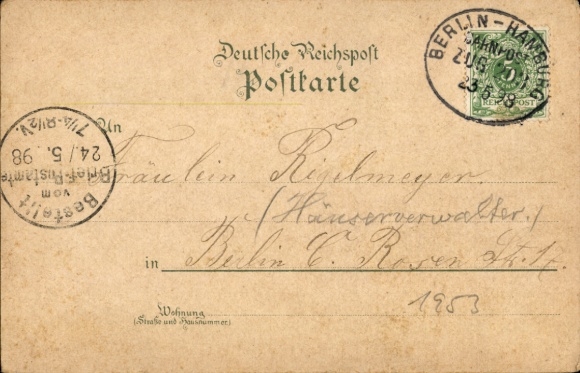 Deutsche Reichspost
Postkarte
BERLIN-HAMBURG
BAHNPOST
ZUG
23 5 98
REICHSPOST
Bestellt
vom
Brief-Postamte
24/5. 98
7¼-8½V.
An
Fräulein Rigelmeyer.
(Häuserverwalter.)
in Berlin C. Rosen Str.
1953
Wohnung
(Straße und Hausnummer)